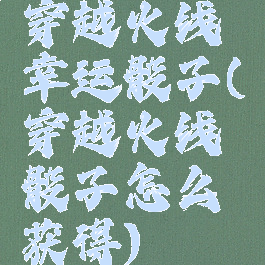 穿越火线
幸运骰子(
穿越火线
骰子怎么
获得)